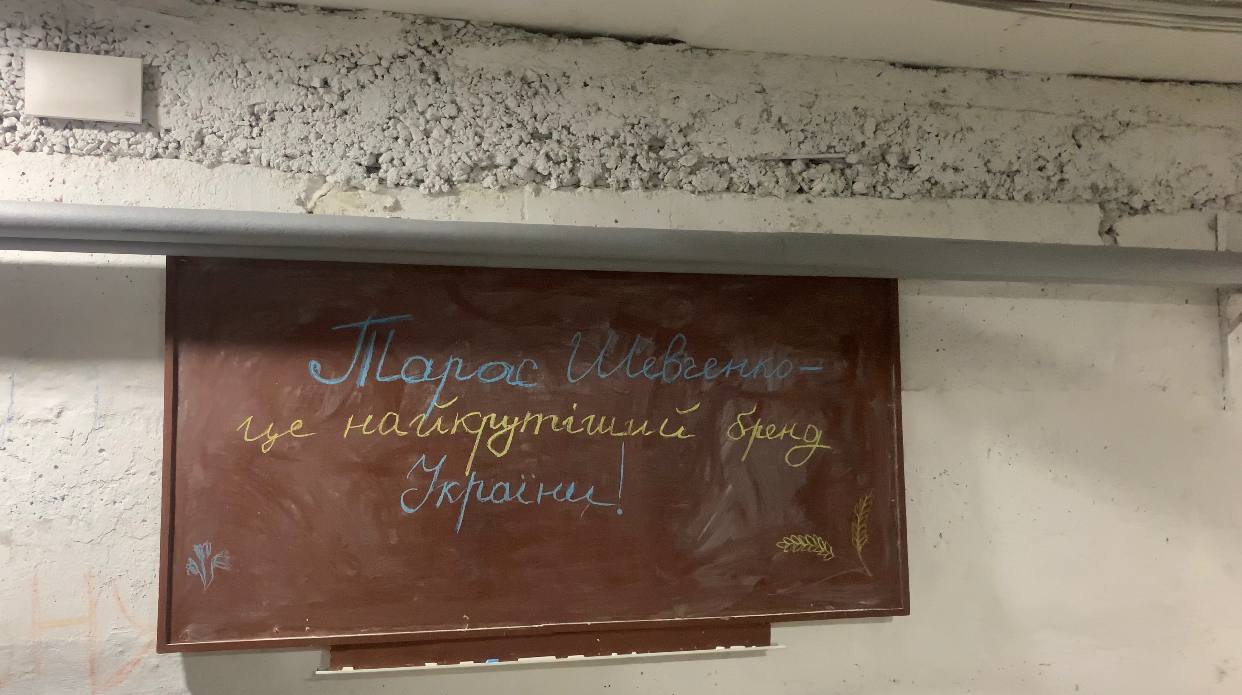 Тарас Шевченко –
це найкрутіший бренд
України!